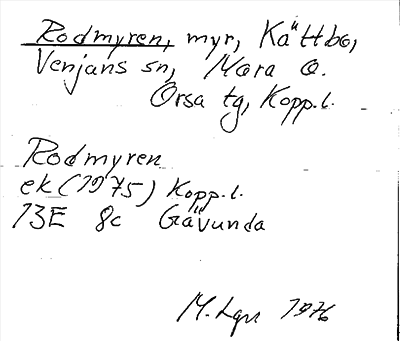 Rodmyren, myr, Kättbo,
Venjans sn, Mora o.
Orsa tg, Kopp.l.
Rodmyren
ek (1975) Kopp.l.
13E 8c Gävunda
M. 1976